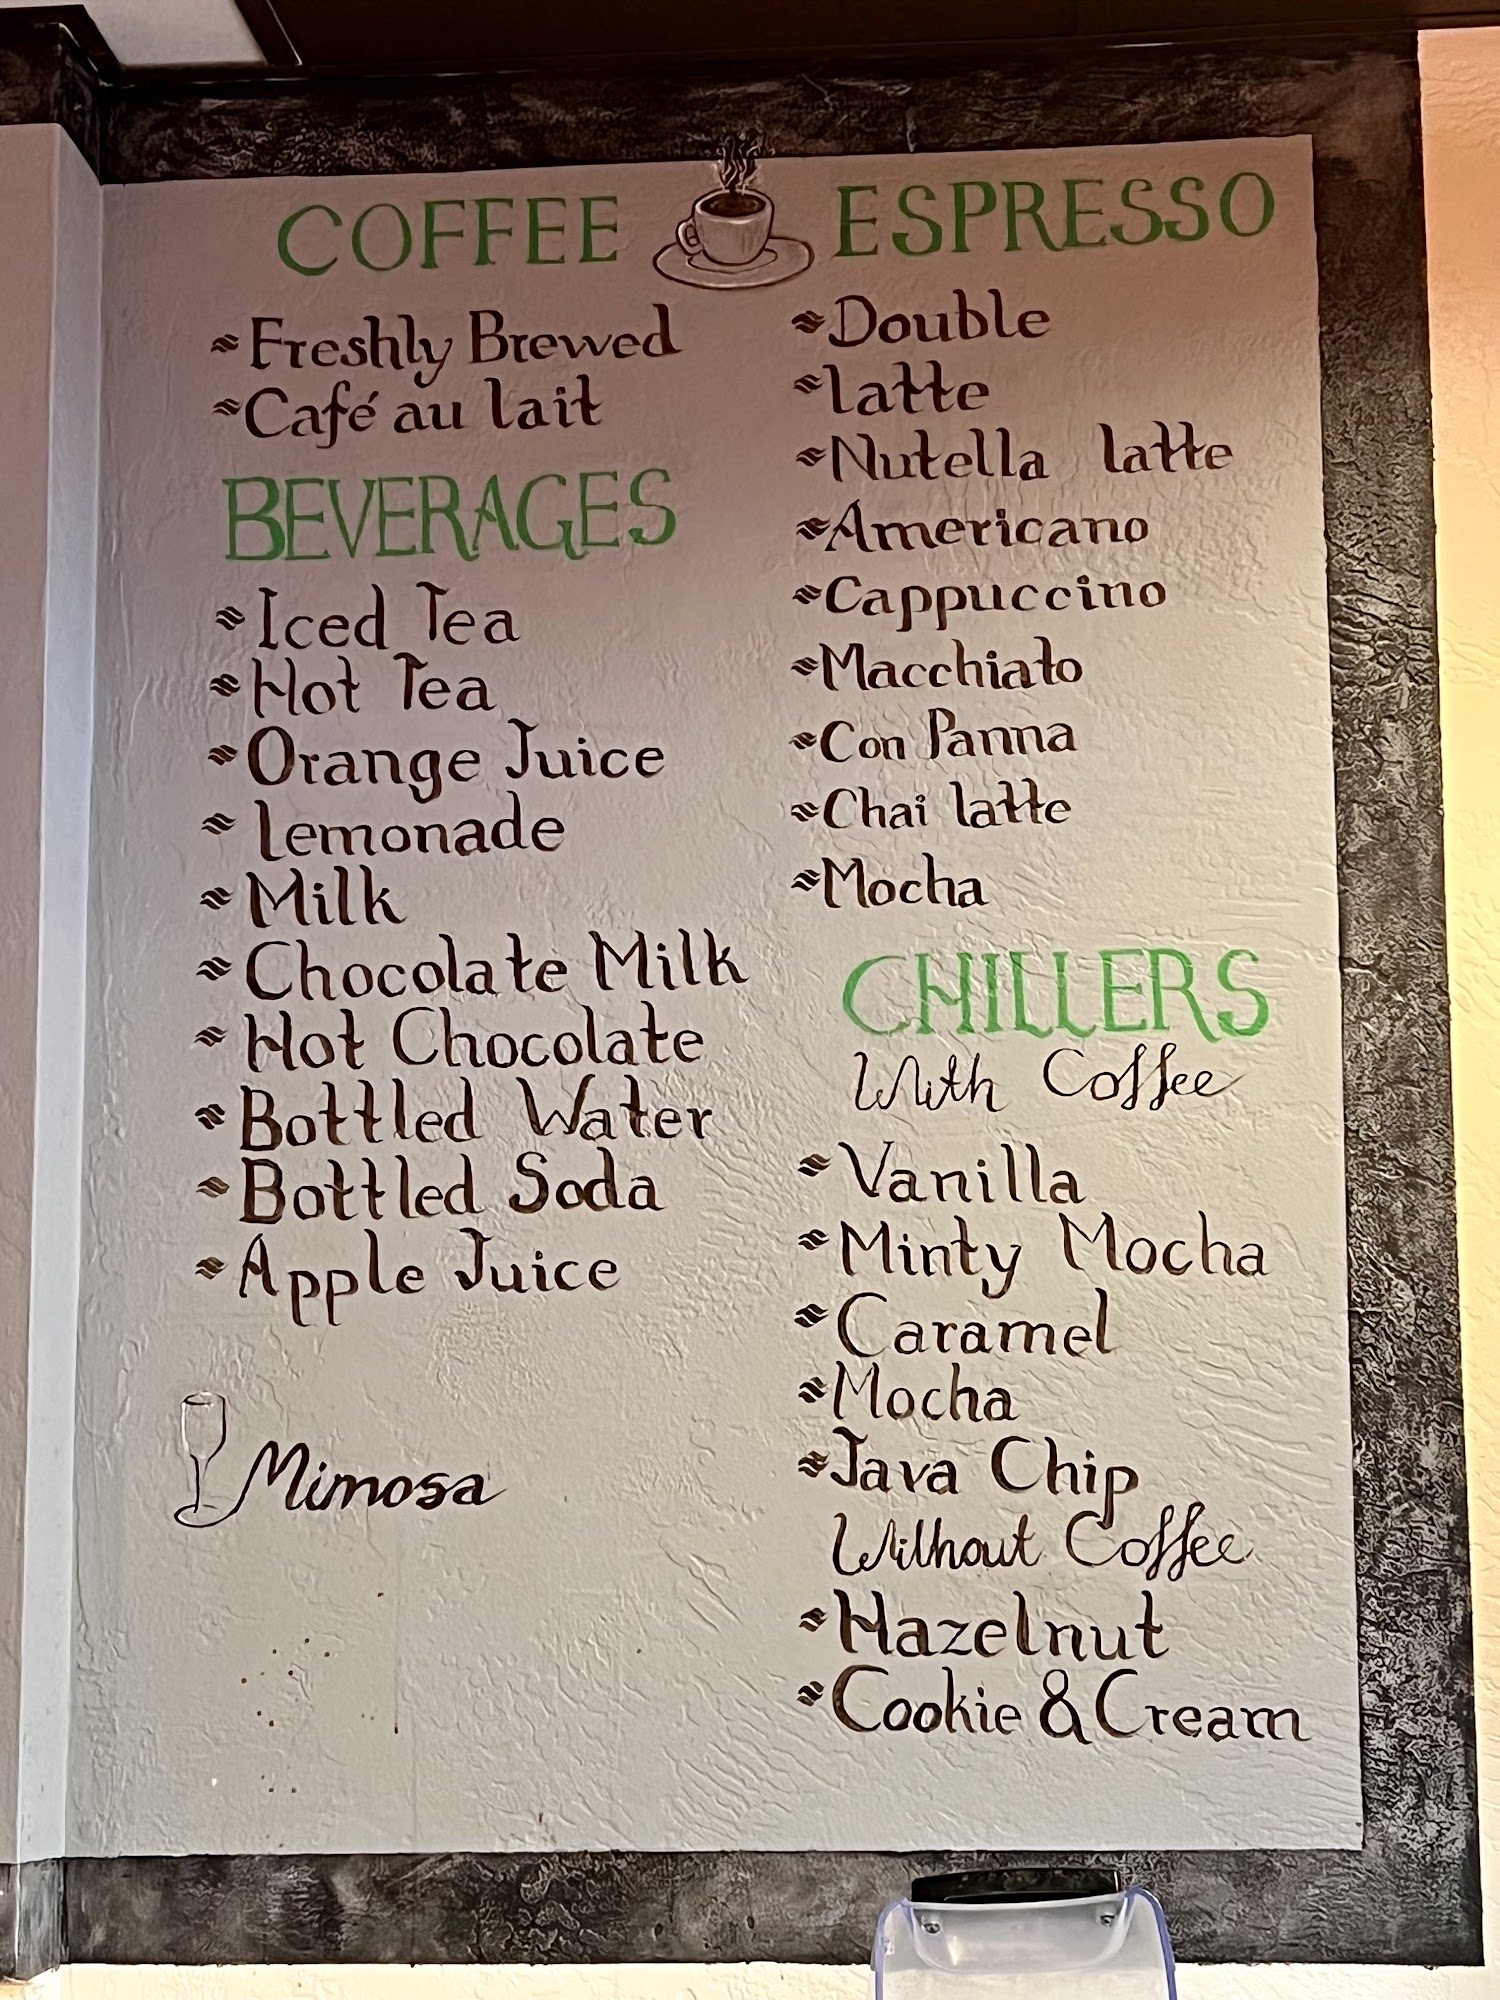 COFFEE
Freshly Brewed
Café au lait
BEVERAGES
Iced Tea
Hot Tea
Orange Juice
Lemonade
Milk
Chocolate Milk
Hot Chocolate
Bottled Water
Bottled Soda
Apple Juice
Mimosa
ESPRESSO
Double
Latte
Nutella Latte
Americano
Cappuccino
Macchiato
Con Panna
Chai Latte
Mocha
CHILLERS
With Coffee
Vanilla
Minty Mocha
Caramel
Mocha
Java Chip
Without Coffee
Hazelnut
Cookie & Cream